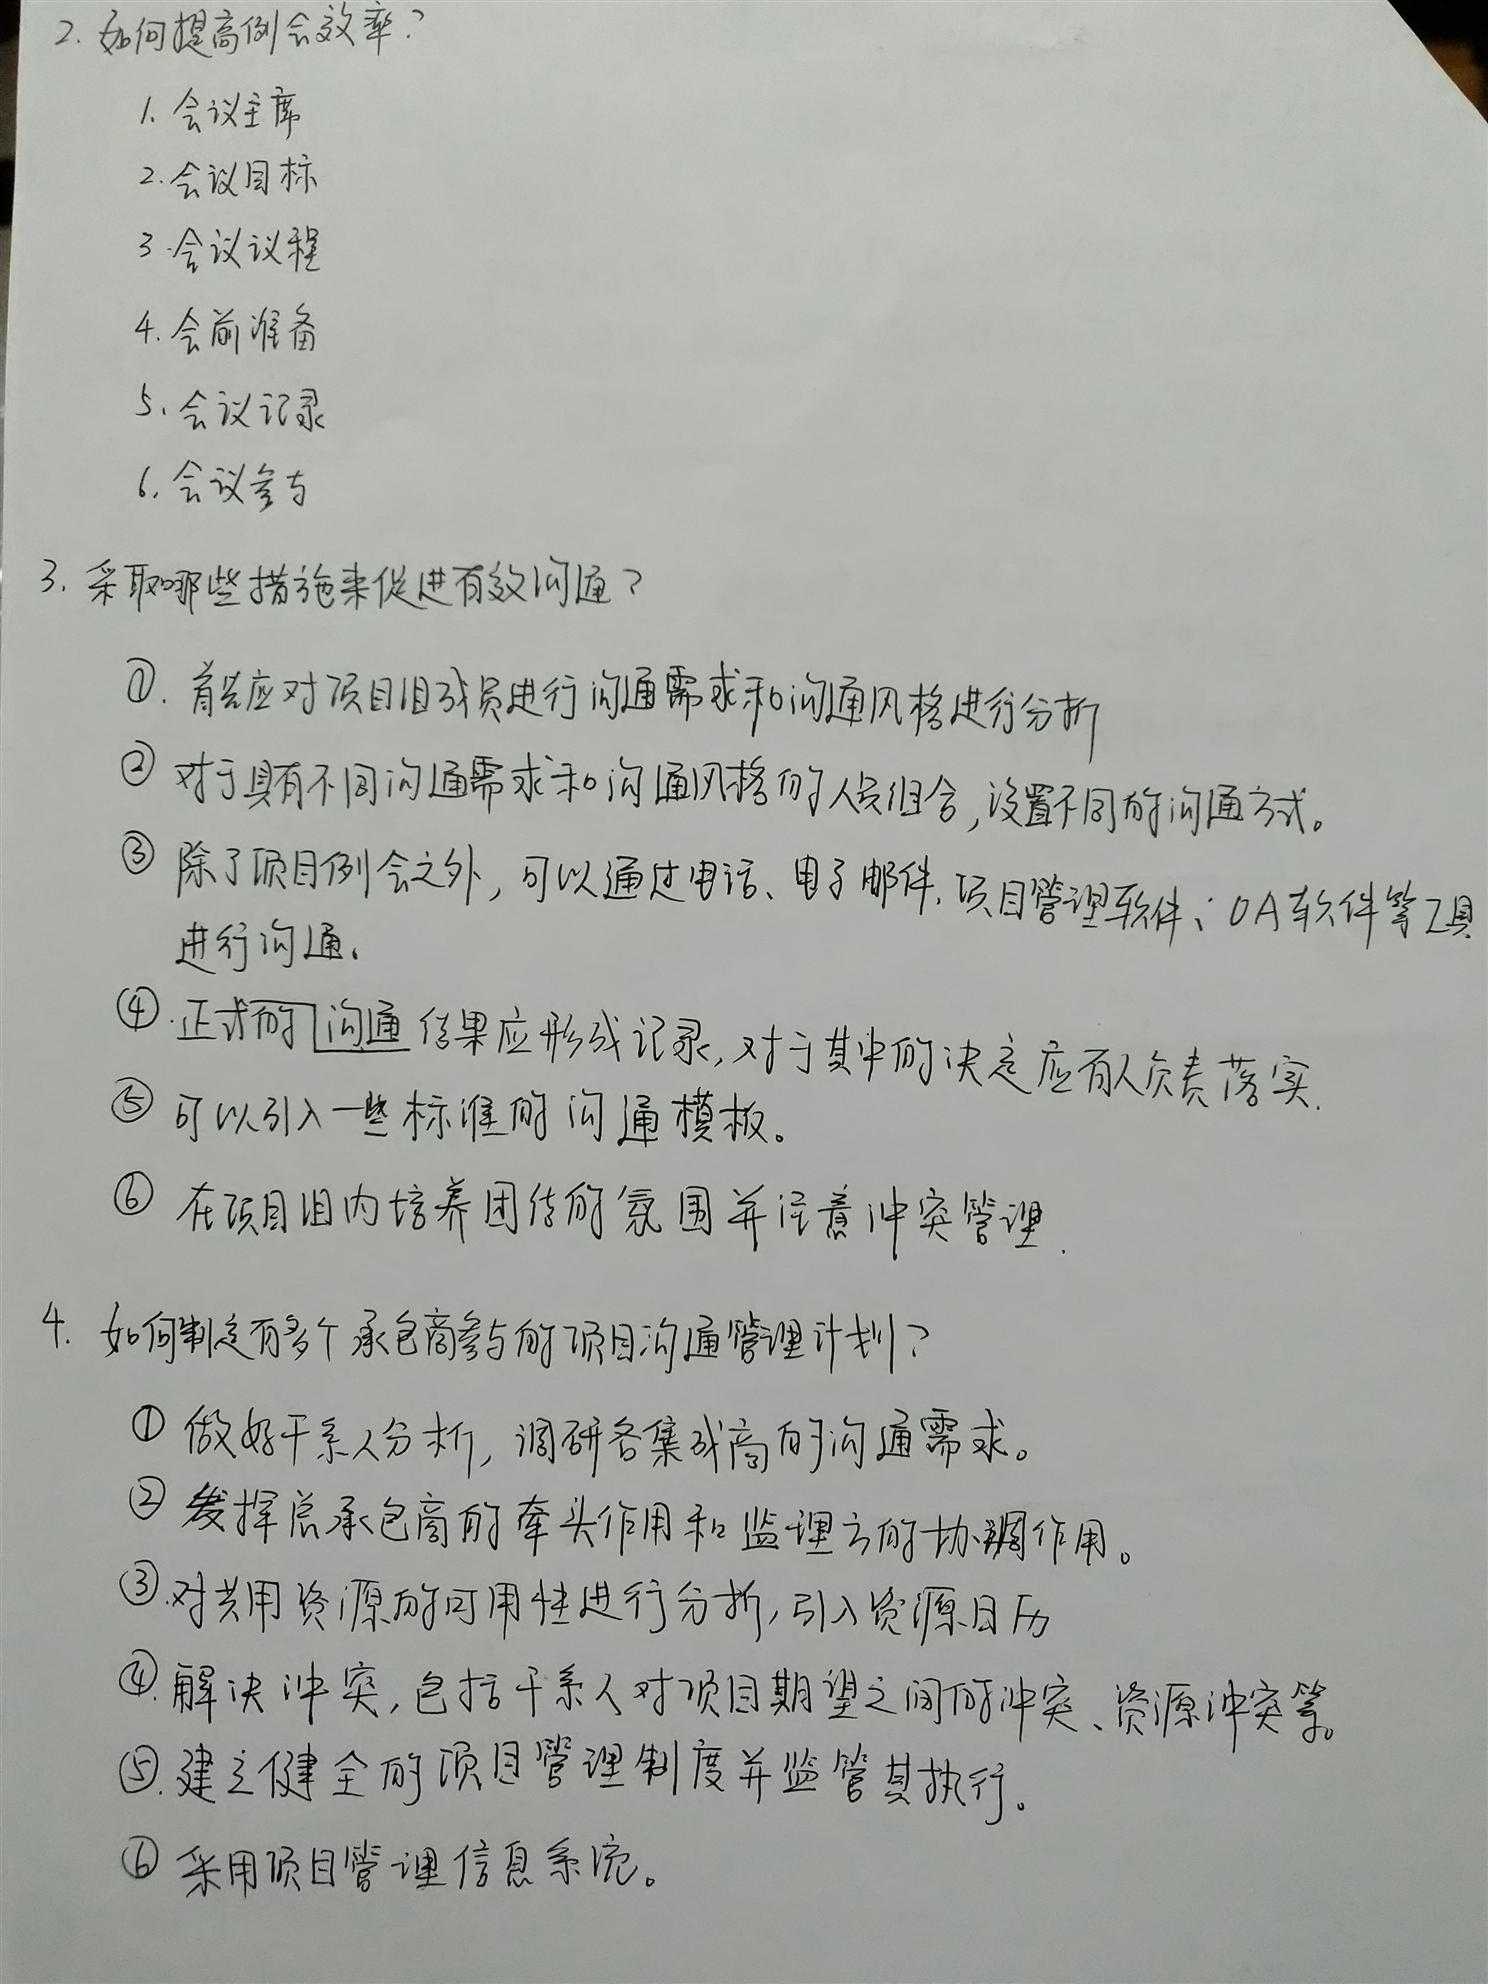 2. 如何提高例会效率?
1. 会议主席
2. 会议目标
3. 会议议程
4. 会前准备
5. 会议记录
6. 会议参与
3. 采取哪些措施来促进有效沟通?
①. 首先应对项目组成员进行沟通需求和沟通风格进行分析
② 对于具有不同沟通需求和沟通风格的人员组合,设置不同的沟通方式。
③ 除了项目例会之外,可以通过电话、电子邮件、项目管理软件、OA软件等工具
进行沟通.
④. 正式的沟通结果应形成记录,对于其中的决定应有人负责落实.
⑤ 可以引入一些标准的沟通模板。
⑥ 在项目组内培养团结的氛围并注意冲突管理.
4. 如何制定有多个承包商参与的项目沟通管理计划?
① 做好干系人分析,调研各集成商的沟通需求。
② 发挥总承包商的牵头作用和监理方的协调作用。
③.对共用资源的可用性进行分析,引入资源日历
④.解决冲突,包括干系人对项目期望之间的冲突、资源冲突等。
⑤.建立健全的项目管理制度并监管其执行。
⑥ 采用项目管理信息系统。